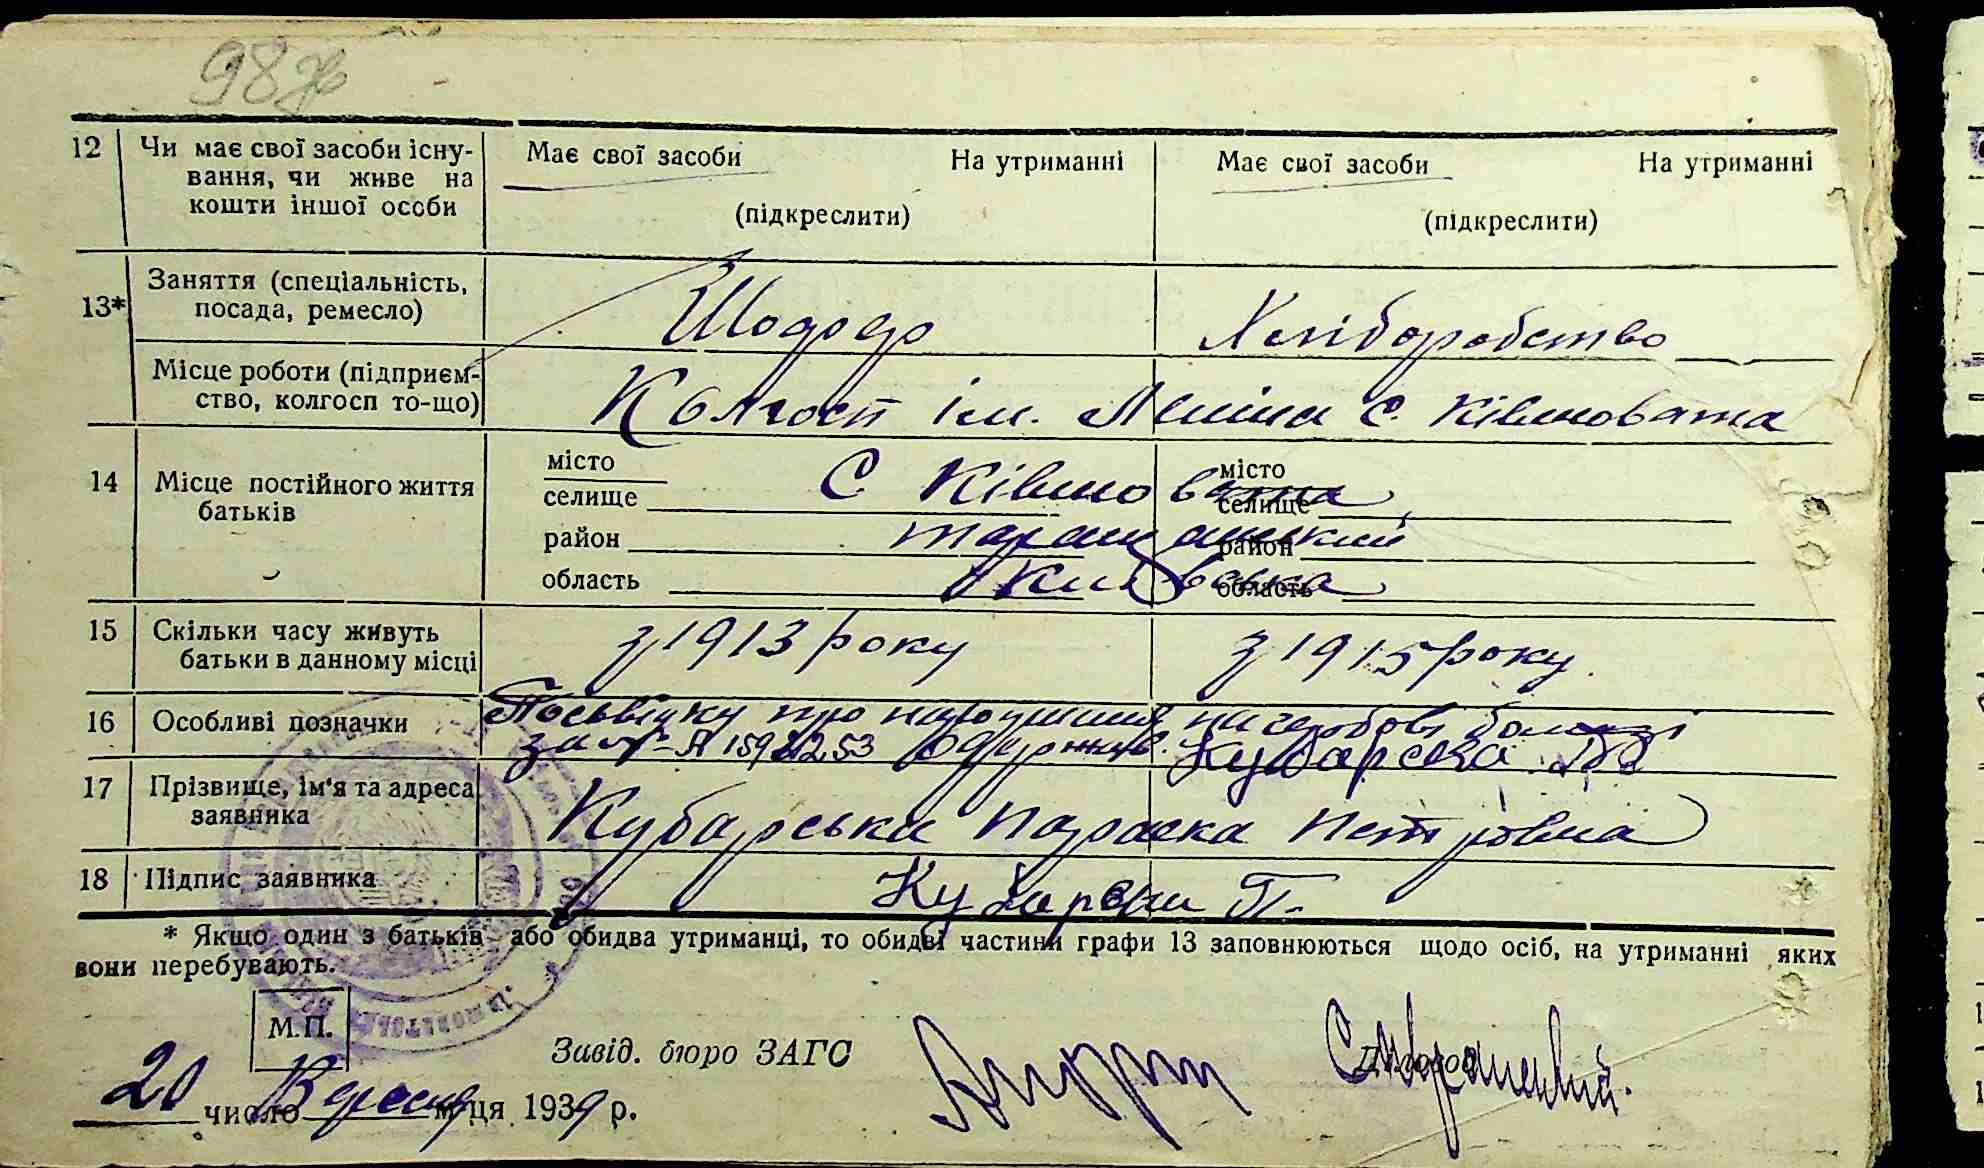 98
12 Чи має свої засоби існу- Має свої засоби На утриманні Має свої засоби На утриманні
вання, чи живе на
кошти іншої особи (підкреслити) (підкреслити)
13* Заняття (спеціальність,
посада, ремесло) Шофер Хліборобство
Місце роботи (підприєм-
ство, колгосп то-що) Колгосп ім. Леніна с. Ківшовата
14 Місце постійного життя
батьків
місто місто
селище С Ківшовата селище
район таращанський район
область Київська область
15 Скільки часу живуть
батьки в данному місці з 1913 року з 1915 року
16 Особливі позначки Посьвідку про народження
за № А 159 Одержав. Кубарська
17 Прізвище, ім'я та адреса
заявника Кубарська Параска Петрівна
18 Підпис заявника Кубарська П.
* Якщо один з батьків або обидва утриманці, то обидві частини графи 13 заповнюються щодо осіб, на утриманні яких
вони перебувають.
М.П.
Завід. бюро ЗАГС Діловод
20 число Вересня м-ця 1939 р.